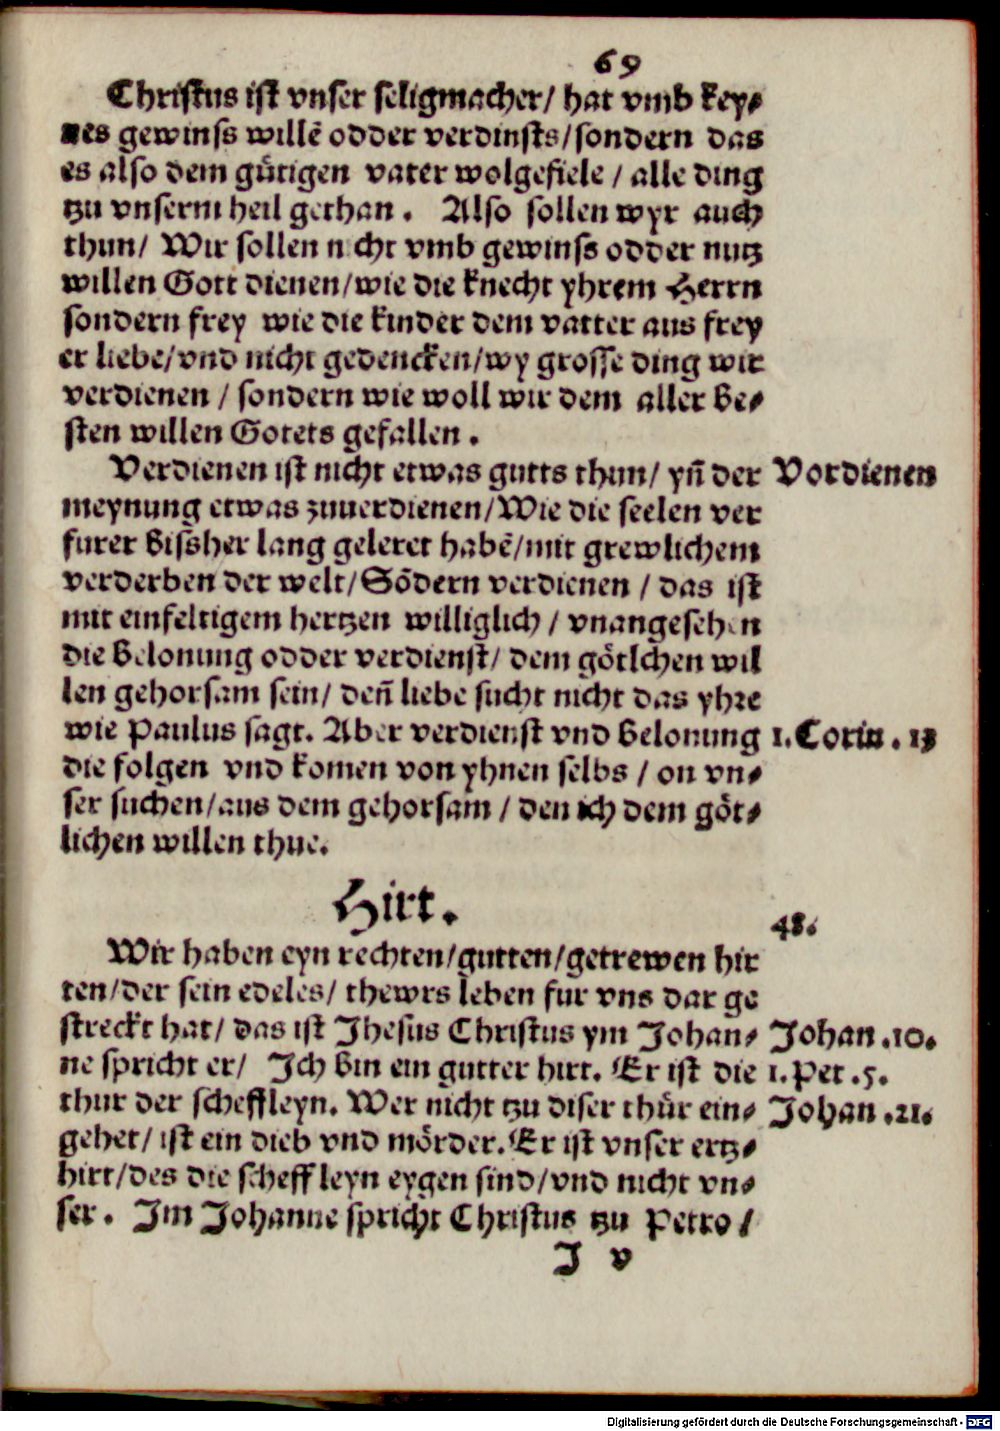 69
Christus ist vnser seligmacher/ hat vmb key⸗
nes gewinss willē odder verdinsts/sondern das
es also dem gůtigen vater wolgefiele / alle ding
tzu vnserm heil gethan. Also sollen wyr auch
thun/ Wir sollen nicht vmb gewinss odder nutz
willen Gott dienen/wie die knecht yhrem Herrn
sondern frey wie die kinder dem vatter aus frey
er liebe/vnd nicht gedencken/wy grosse ding wir
verdienen / sondern wie woll wir dem aller be⸗
sten willen Gotets gefallen.
Verdienen ist nicht etwas gutts thun/ yn̄ der Vordienen
meynung etwas zuuerdienen/Wie die seelen ver
furer bissher lang geleret habē/mit grewlichem
verderben der welt/Sōdern verdienen / das ist
mit einfeltigem hertzen williglich / vnangesehen
die belonung odder verdienst/ dem götlchen wil
len gehorsam sein/ den̄ liebe sucht nicht das yhre
wie Paulus sagt. Aber verdienst vnd belonung 1. Corin. 13
die folgen vnd komen von yhnen selbs / on vn⸗
ser suchen/aus dem gehorsam / den ich dem göt⸗
lichen willen thue.
Hirt.
48.
Wir haben eyn rechten/gutten/getrewen hir
ten/der sein edeles/ thewrs leben fur vns dar ge
streckt hat/ das ist Jhesus Christus ym Johan⸗ Johan .10.
ne spricht er/ Ich bin ein gutter hirt. Er ist die 1. Pet .5.
thur der scheffleyn. Wer nicht tzu diser thür ein⸗ Johan .21.
gehet/ ist ein dieb vnd mörder. Er ist vnser ertz⸗
hirt/des die scheffleyn eygen sind/vnd nicht vn⸗
ser. Im Johanne spricht Christus tzu Petro/
J v
Digitalisierung gefördert durch die Deutsche Forschungsgemeinschaft - DFG